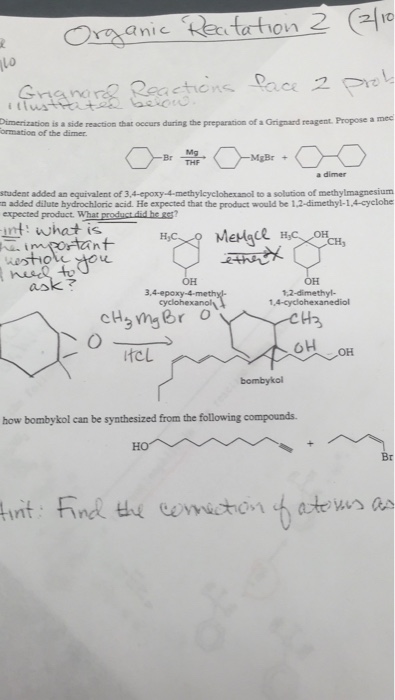 Organic Recitation 2 (2/10
Grignard Reactions face 2 prob
illustrated below.
Dimerization is a side reaction that occurs during the preparation of a Grignard reagent. Propose a mec
ormation of the dimer.
Br Mg THF MgBr +
a dimer
student added an equivalent of 3,4-epoxy-4-methylcyclohexanol to a solution of methylmagnesium
n added dilute hydrochloric acid. He expected that the product would be 1,2-dimethyl-1,4-cyclohe
expected product. What product did he get?
int: what is
the important
question you
need to
ask?
H₃C O MeMgCl ether H₃C OH CH₃
OH OH
3,4-epoxy-4-methyl-
cyclohexanol
1,2-dimethyl-
1,4-cyclohexanediol
O CH₃MgBr HCl O CH₃
OH
OH
bombykol
how bombykol can be synthesized from the following compounds.
HO + Br
Hint: Find the connection of atoms as